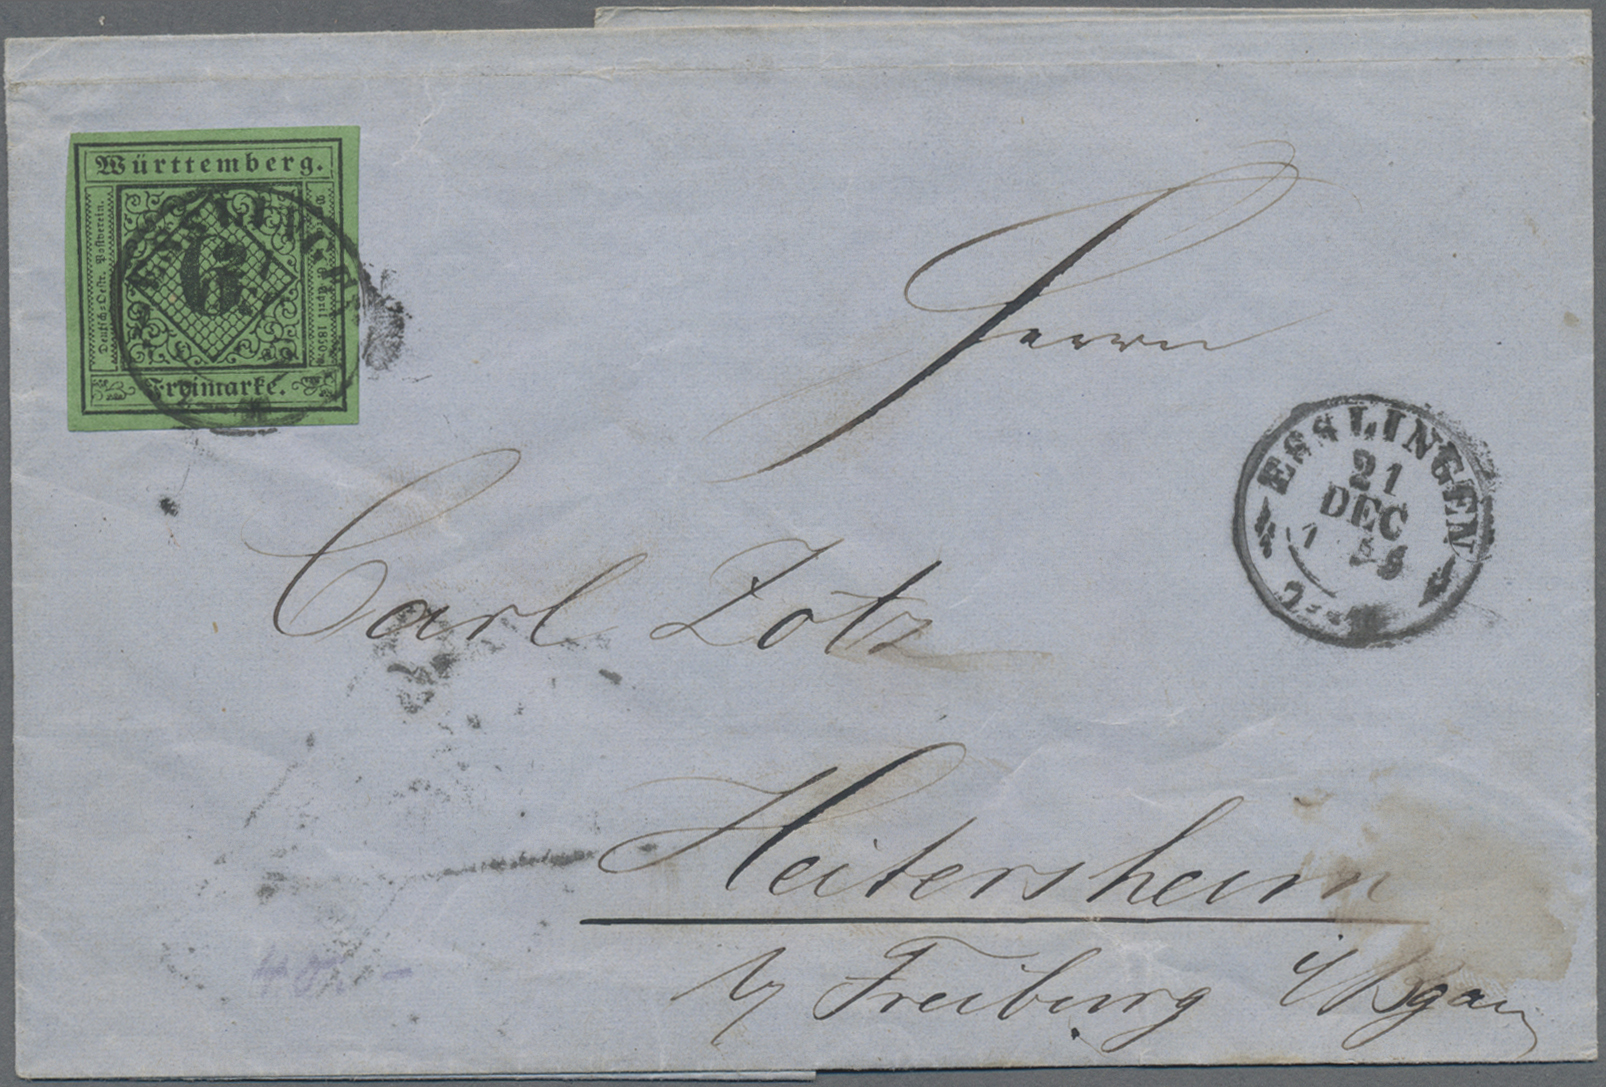 Württemberg.
Deutsch-Oestr. Postverein.
6
April 1850
Freimarke.
ESSLINGEN
Herrn
ESSLINGEN
21
DEC
Carl Zotz
Heitersheim
b/ Freiburg i/Bgau